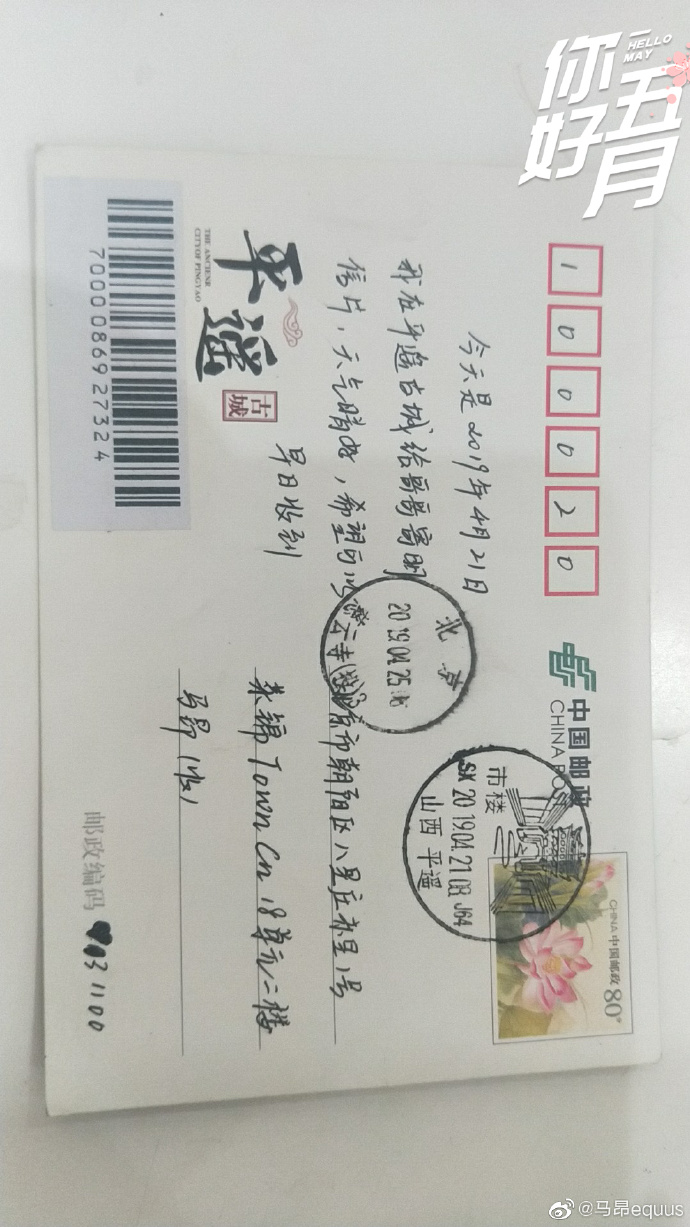 你好五月
HELLO
MAY
100020
中国邮政
CHINA POST
今天是2019年4月21日
我在平遥古城给哥哥寄明
信片，天气晴好，希望可以
早日收到
平遥
古城
THE ANCIENE
CITYOF PINGYAO
7000086927324
北京
2019.04.25
市楼
SX 2019.04.21 08 J64
山西 平遥
CHINA 中国邮政
80分
京市朝阳区八里庄东里1号
莱锦TownCn 18单元二楼
马昂（收）
邮政编码 031100
@马昂equus